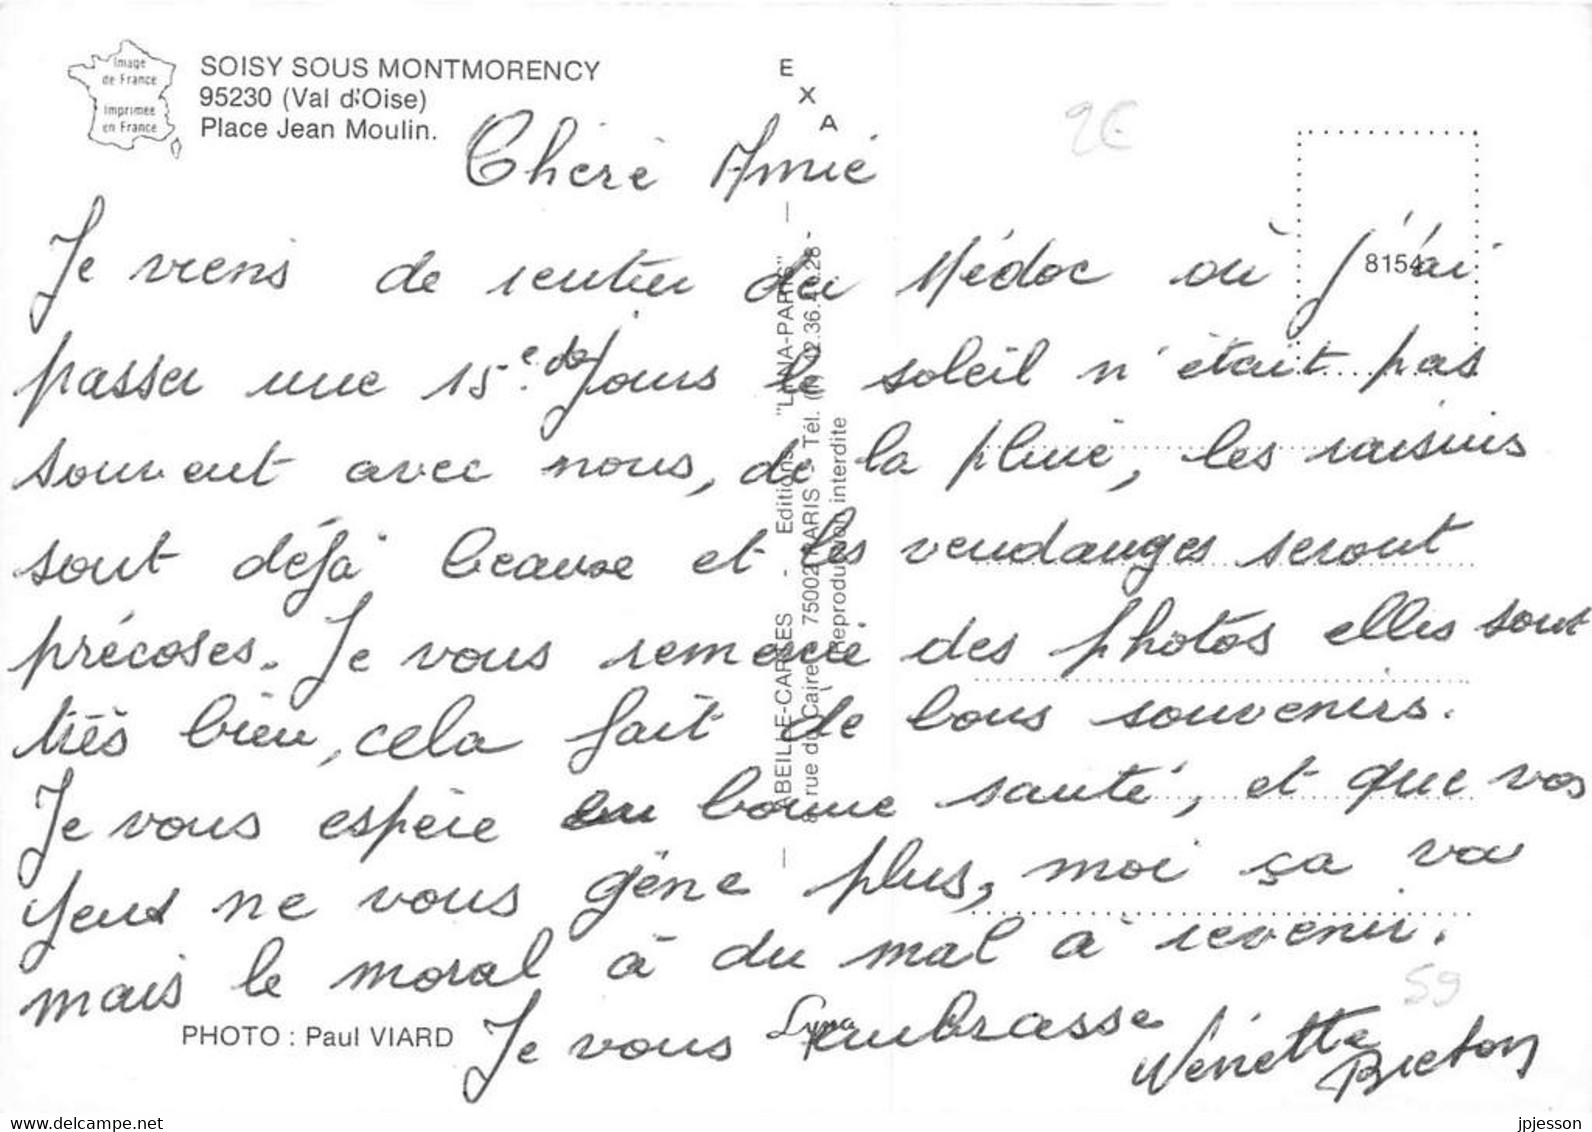 Image
de France
Imprimée
en France
SOISY SOUS MONTMORENCY
95230 (Val d'Oise)
Place Jean Moulin.
E
X
A
2€
8154
Chéré Amié
Je viens de rentrer du Médoc où j'ai
passer une 15e de jours le soleil n'était pas
souvent avec nous, de la pluie, les raisins
sont déjà beaux et les vendanges seront
précoses. Je vous remercie des photos elles sont
très bien, cela fait de bons souvenirs.
Je vous espère en bonne santé, et que vos
yeux ne vous gêne plus, moi ça va
mais le moral à du mal à revenir.
Je vous embrasse
Breton
59
ABEILLE-CARTES - Editions "LYNA-PARIS"
rue du Caire 75002 PARIS - Tél.
Reproduction interdite
PHOTO : Paul VIARD
Lyna
jpjesson